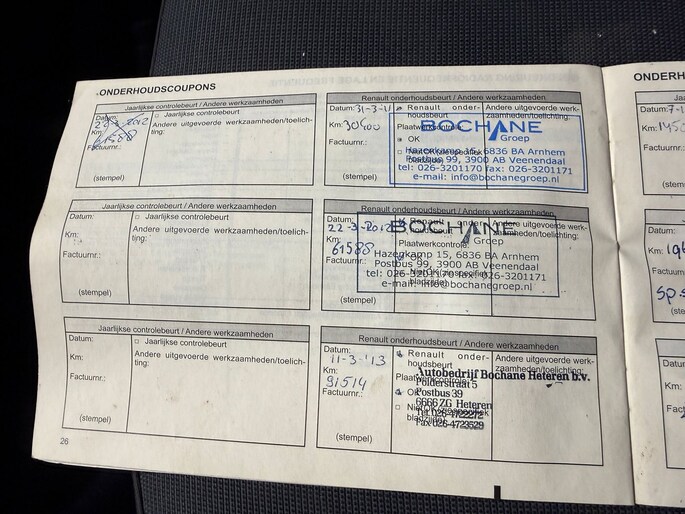 ONDERHOUDSCOUPONS
Jaarlijkse controlebeurt / Andere werkzaamheden
Datum:
□ Jaarlijkse controlebeurt
Andere uitgevoerde werkzaamheden/toelich-
ting:
Km:
61588
Factuurnr.:
(stempel)
Renault onderhoudsbeurt / Andere werkzaamheden
Datum: 31-3-11
Renault onder-
houdsbeurt
Andere uitgevoerde werk-
zaamheden/toelichting:
Km: 30400
OK
Factuurnr.:
(stempel)
BOCHANE
Groep
Hazenkamp 15, 6836 BA Arnhem
Postbus 99, 3900 AC Veenendaal
tel: 026-3201170 fax: 026-3201171
e-mail: info@bochanegroep.nl
Jaarlijkse controlebeurt / Andere werkzaamheden
Datum:
□ Jaarlijkse controlebeurt
Andere uitgevoerde werkzaamheden/toelich-
ting:
Km:
Factuurnr.:
(stempel)
Renault onderhoudsbeurt / Andere werkzaamheden
Datum:
22-3-2012
Renault onder-
houdsbeurt
Andere uitgevoerde werk-
zaamheden/toelichting:
Plaatwerkcontrole:
Km:
61588
Factuurnr.:
(stempel)
BOCHANE
Groep
Hazenkamp 15, 6836 BA Arnhem
Postbus 99, 3900 AB Veenendaal
tel: 026-3201170 fax: 026-3201171
e-mail: info@bochanegroep.nl
Jaarlijkse controlebeurt / Andere werkzaamheden
Datum:
□ Jaarlijkse controlebeurt
Andere uitgevoerde werkzaamheden/toelich-
ting:
Km:
Factuurnr.:
(stempel)
Renault onderhoudsbeurt / Andere werkzaamheden
Datum:
11-3-'13
Renault onder-
houdsbeurt
Andere uitgevoerde werk-
zaamheden/toelichting:
Km:
91514
Factuurnr.:
OK
(stempel)
Autobedrijf Bochane Heteren b.v.
Polderstraat 5
Postbus 39
6666 ZG Heteren
Tel 026-4722272
Fax 026-4723529
26
ONDERH
Datum:
Km:
(ste